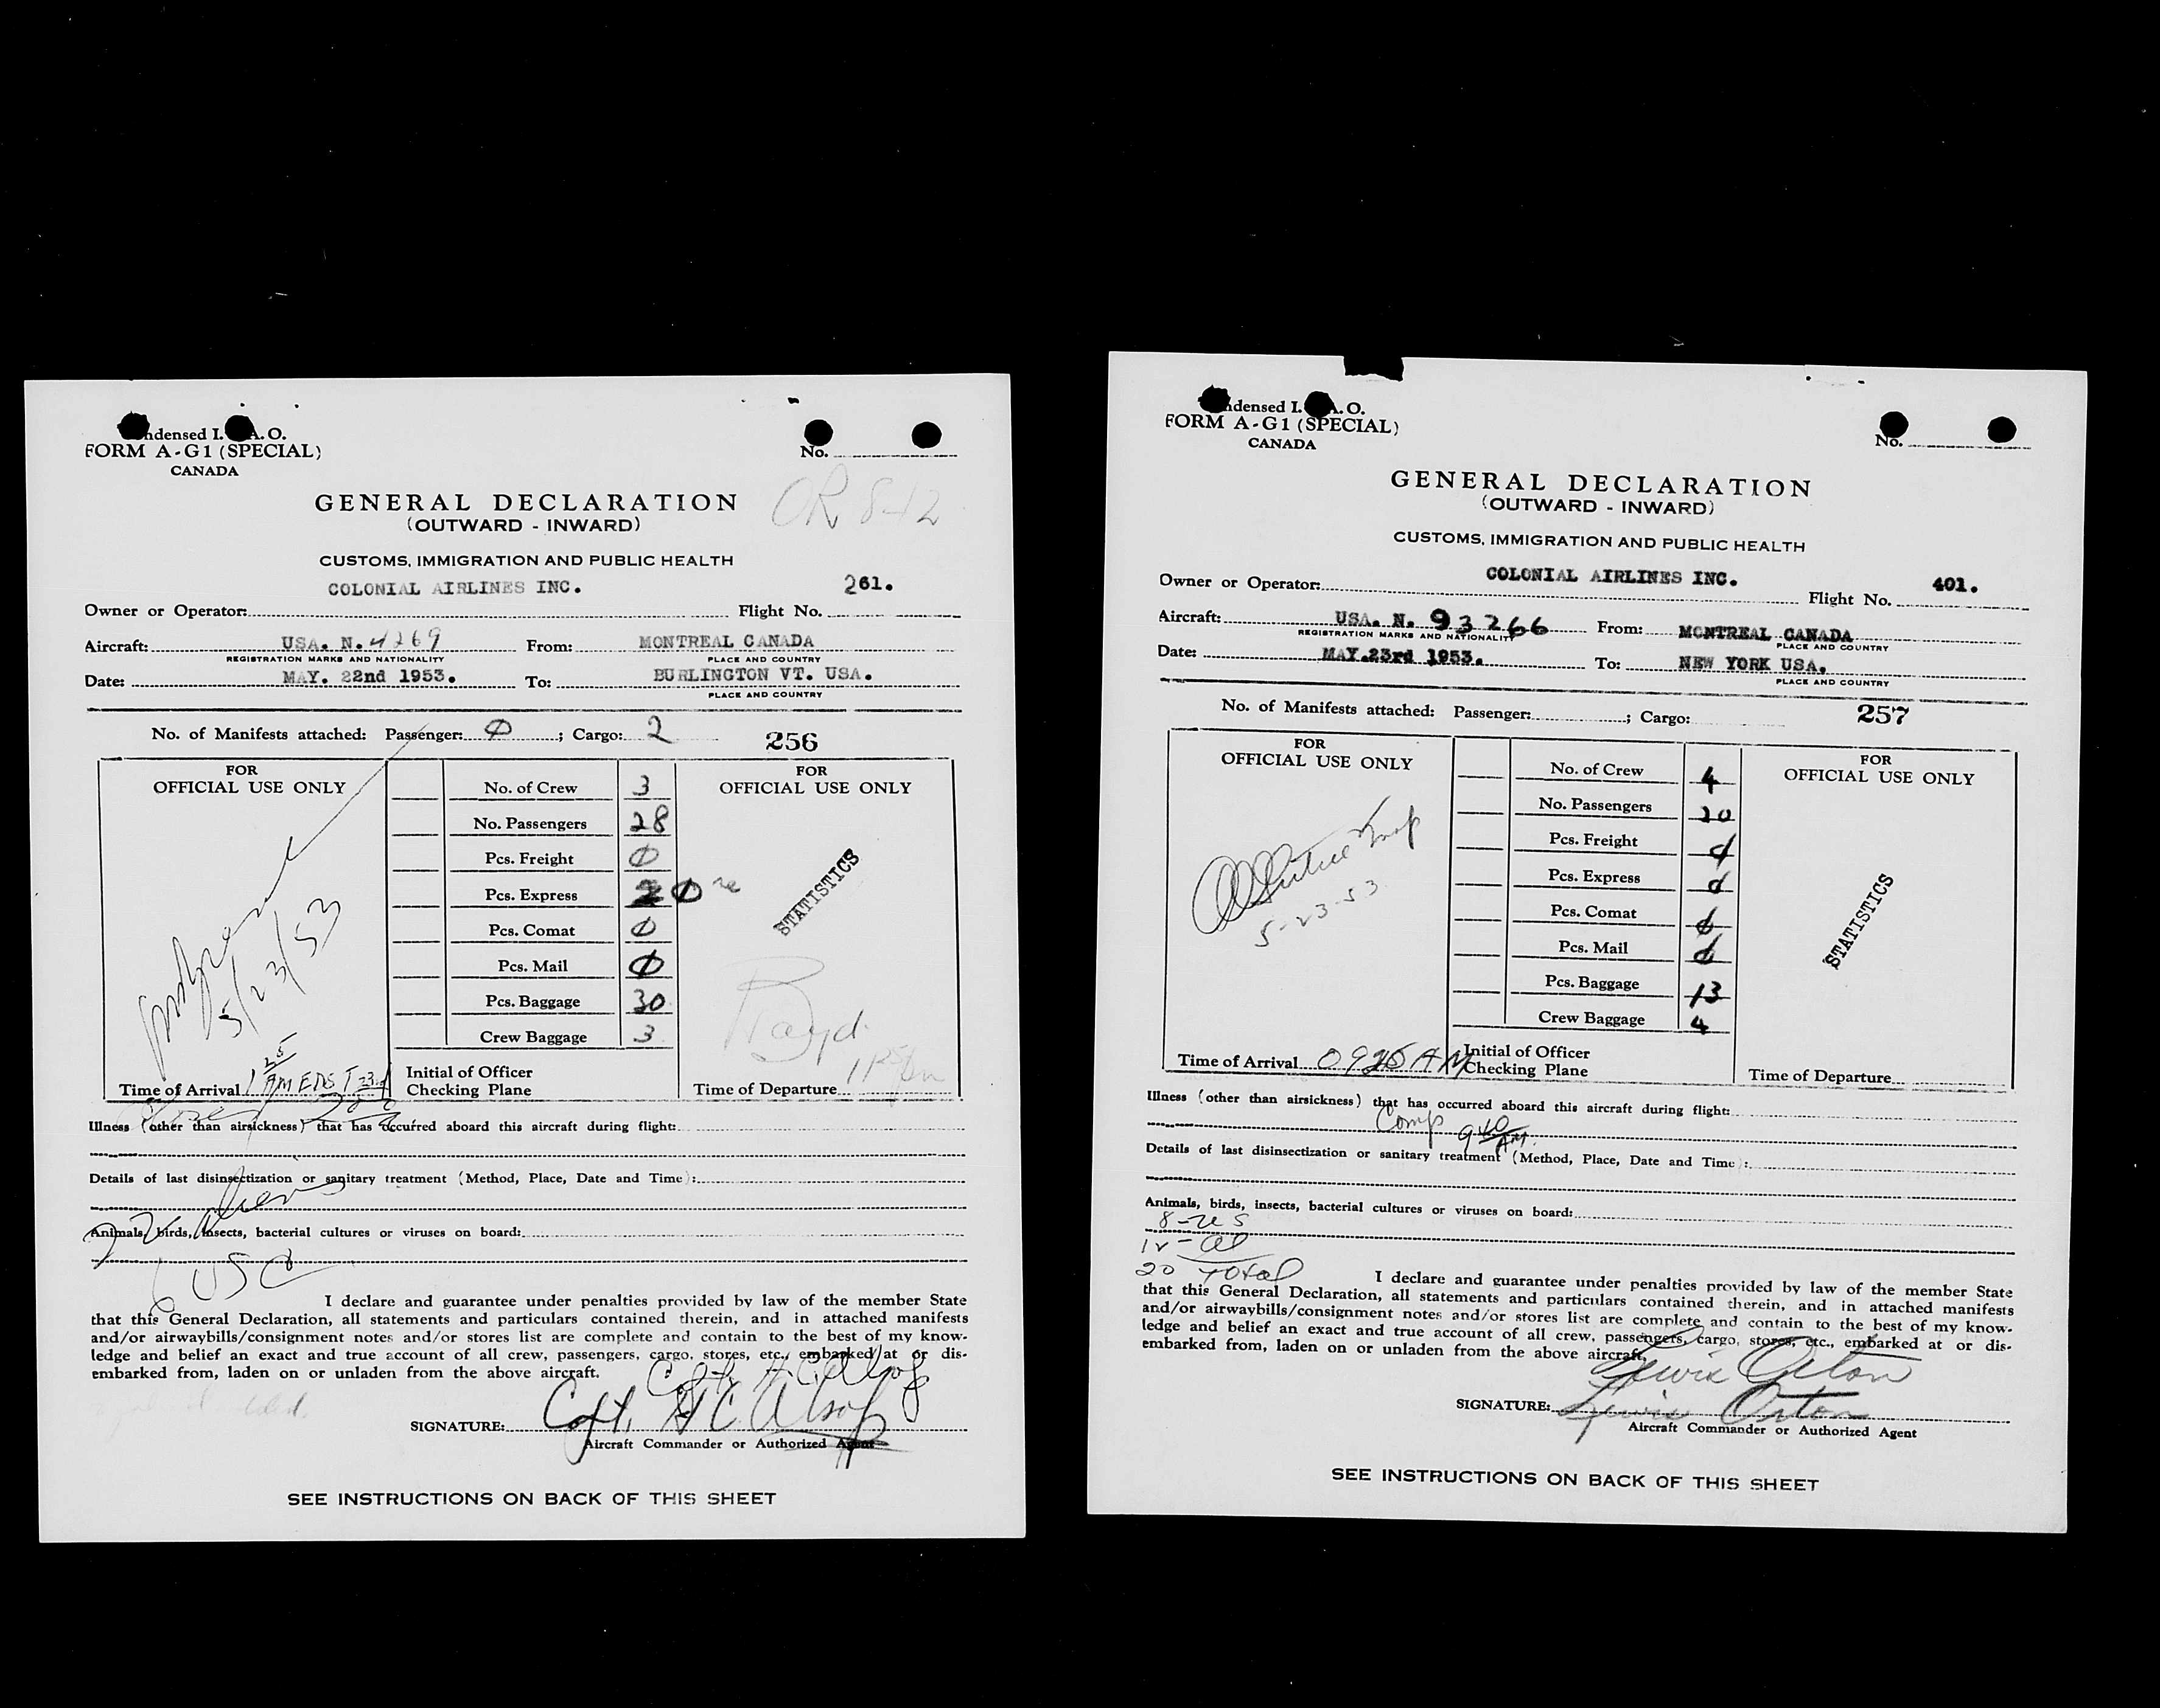 ndensed I. A. O.
FORM A-G1 (SPECIAL)
CANADA
No.
OR 8-12
GENERAL DECLARATION
(OUTWARD - INWARD)
CUSTOMS, IMMIGRATION AND PUBLIC HEALTH
COLONIAL AIRLINES INC. 261.
Owner or Operator: Flight No.
Aircraft: USA. N. 4269 From: MONTREAL CANADA
REGISTRATION MARKS AND NATIONALITY PLACE AND COUNTRY
Date: MAY. 22nd 1953. To: BURLINGTON VT. USA.
PLACE AND COUNTRY
No. of Manifests attached: Passenger: Ø ; Cargo: 2 256
FOR
OFFICIAL USE ONLY
5/23/53
1 25 AM EDST 23rd
Time of Arrival
No. of Crew 3
No. Passengers 28
Pcs. Freight Ø
Pcs. Express 2 Ø
Pcs. Comat Ø
Pcs. Mail Ø
Pcs. Baggage 30
Crew Baggage 3
Initial of Officer
Checking Plane
FOR
OFFICIAL USE ONLY
STATISTICS
Boyd
Time of Departure
Illness (other than airsickness) that has occurred aboard this aircraft during flight:
Details of last disinsection or sanitary treatment (Method, Place, Date and Time):
22 aliens
Animals, birds, insects, bacterial cultures or viruses on board:
6 USC
I declare and guarantee under penalties provided by law of the member State
that this General Declaration, all statements and particulars contained therein, and in attached manifests
and/or airwaybills/consignment notes and/or stores list are complete and contain to the best of my know-
ledge and belief an exact and true account of all crew, passengers, cargo, stores, etc., embarked at or dis-
embarked from, laden on or unladen from the above aircraft.
Capt. H.C. Alsop
SIGNATURE: Capt. H C. Alsop
Aircraft Commander or Authorized Agent
SEE INSTRUCTIONS ON BACK OF THIS SHEET
ndensed I. A. O.
FORM A-G1 (SPECIAL)
CANADA
No.
GENERAL DECLARATION
(OUTWARD - INWARD)
CUSTOMS, IMMIGRATION AND PUBLIC HEALTH
COLONIAL AIRLINES INC. 401.
Owner or Operator: Flight No.
Aircraft: USA. N. 93266 From: MONTREAL CANADA
REGISTRATION MARKS AND NATIONALITY PLACE AND COUNTRY
Date: MAY.23rd 1953. To: NEW YORK USA.
PLACE AND COUNTRY
No. of Manifests attached: Passenger: ; Cargo: 257
FOR
OFFICIAL USE ONLY
5-23-53
Time of Arrival 0925 AM
No. of Crew 4
No. Passengers 20
Pcs. Freight Ø
Pcs. Express Ø
Pcs. Comat Ø
Pcs. Mail Ø
Pcs. Baggage 13
Crew Baggage 4
Initial of Officer
Checking Plane
FOR
OFFICIAL USE ONLY
STATISTICS
Time of Departure
Illness (other than airsickness) that has occurred aboard this aircraft during flight:
Comp 9 40 AM.
Details of last disinsectization or sanitary treatment (Method, Place, Date and Time):
Animals, birds, insects, bacterial cultures or viruses on board:
8-us
12-al
20 Total
I declare and guarantee under penalties provided by law of the member State
that this General Declaration, all statements and particulars contained therein, and in attached manifests
and/or airwaybills/consignment notes and/or stores list are complete and contain to the best of my know-
ledge and belief an exact and true account of all crew, passengers, cargo, stores, etc., embarked at or dis-
embarked from, laden on or unladen from the above aircraft,
Lewis Orton
SIGNATURE: Lewis Orton
Aircraft Commander or Authorized Agent
SEE INSTRUCTIONS ON BACK OF THIS SHEET